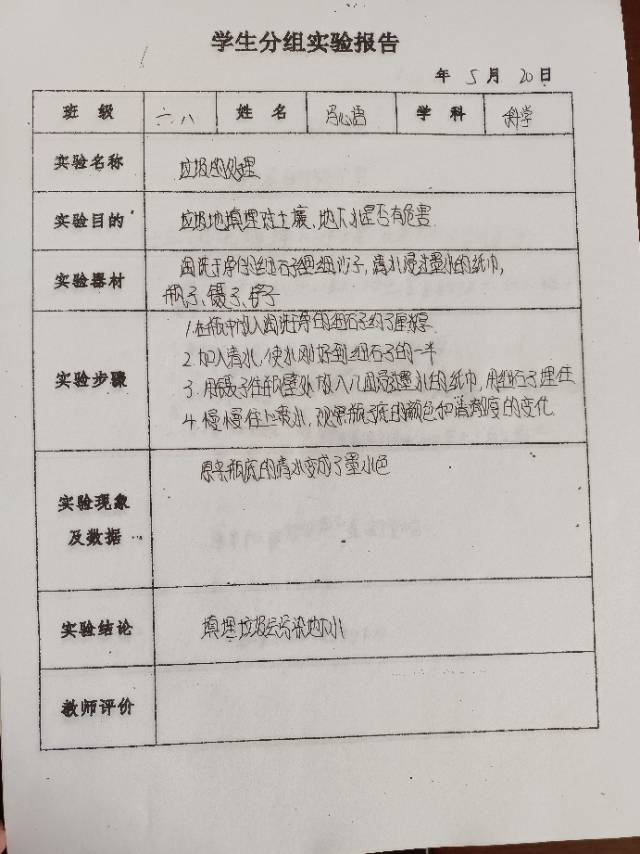 学生分组实验报告
年 5 月 20 日
班 级 六八 姓 名 冯心语 学 科 科学
实验名称 垃圾的处理
实验目的 垃圾地填埋对土壤、地下水是否有危害
实验器材 洗干净的细石子细沙子,清水浸过墨水的纸巾,
瓶子、镊子、铲子
实验步骤
1.在瓶中加入洗干净的细石子约了厘米厚
2.加入清水,使水刚好到细石子的一半
3.用镊子在瓶壁处放入几团浸过墨水的纸巾,用细石子埋住
4.慢慢往上喷水,观察瓶子底的颜色和清澈度的变化
实验现象
及数据
原来瓶底的清水变成了墨水色
实验结论 填埋垃圾会污染地下水
教师评价